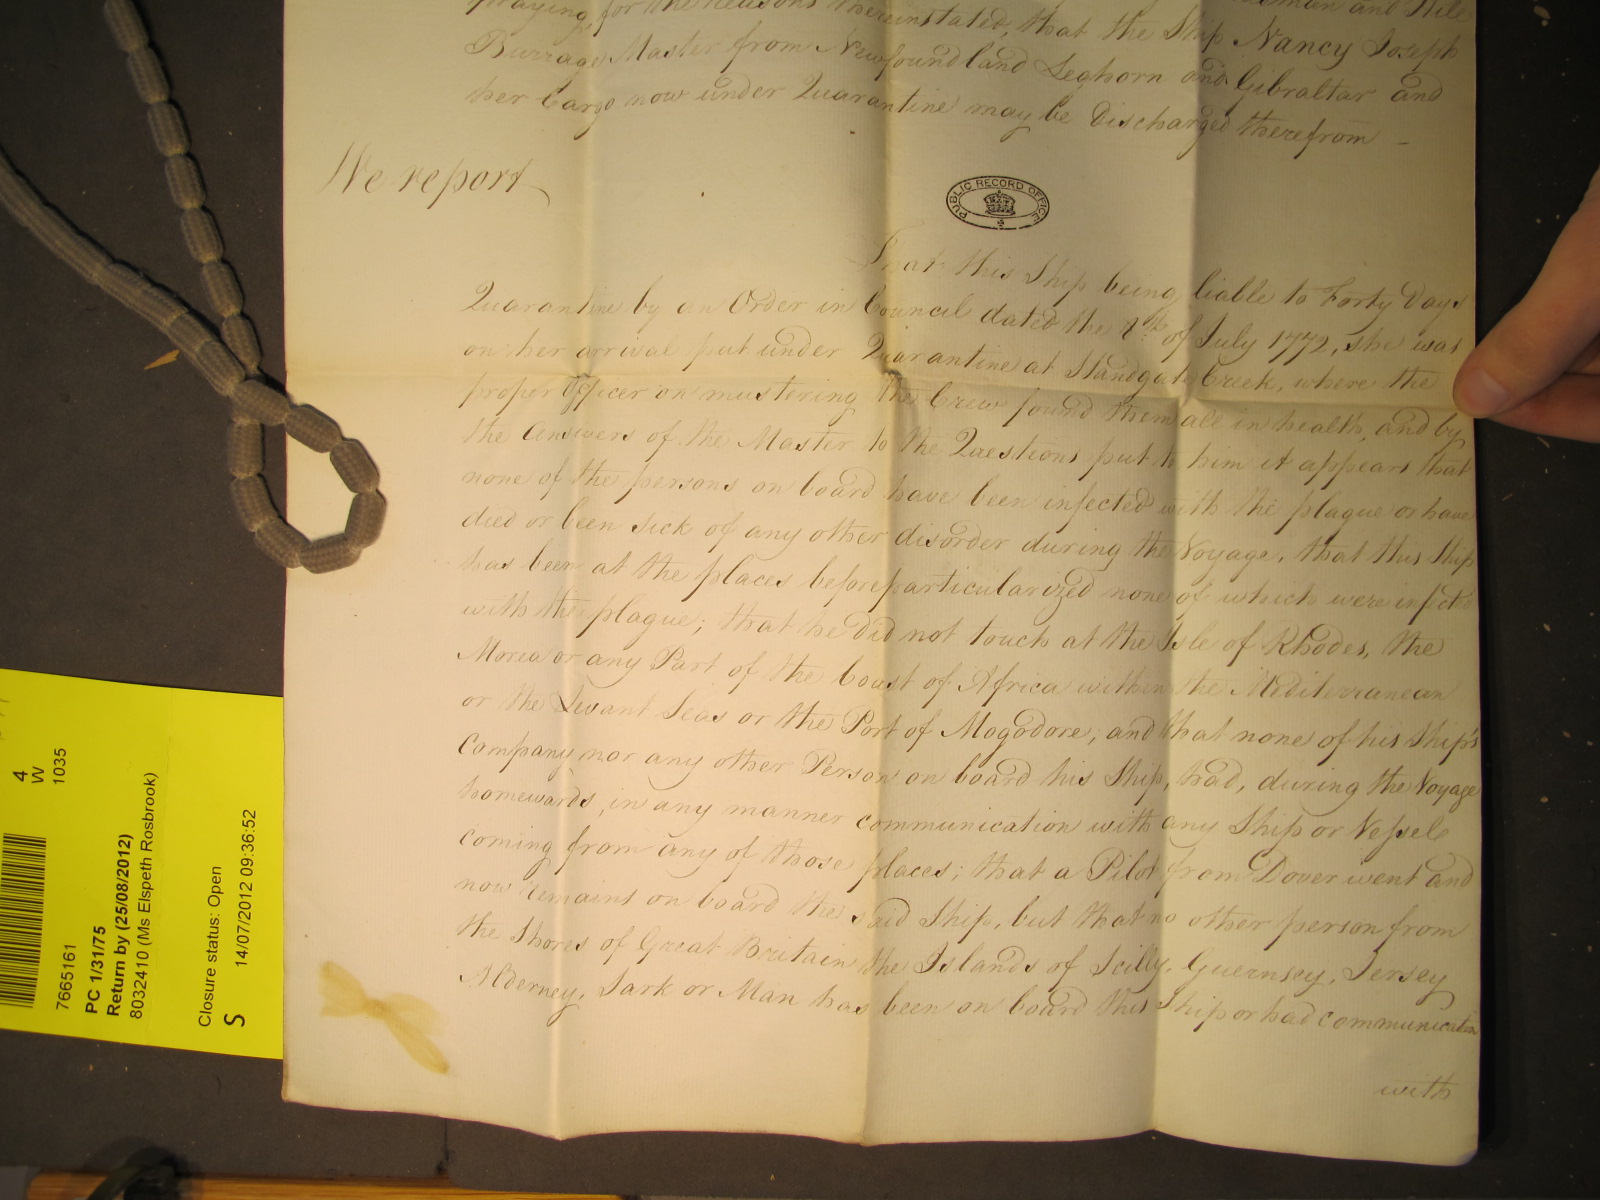 praying, for the Reasons thereinstated, that the Ship Nancy Joseph
Burrage Master from Newfoundland Leghorn and Gibraltar and
her Cargo now under Quarantine may be Discharged therefrom -
We report
PUBLIC RECORD OFFICE
That this Ship being liable to Forty Days
Quarantine by an Order in Council dated the of July 1772, she was
on her arrival put under Quarantine at Standgate Creek, where the
proper Officer on mustering the Crew found them all in health, and by
the Answers of the Master to the Questions put to him it appears that
none of the persons on board have been infected with the plague or have
died or been sick of any other disorder during the Voyage, that this Ship
has been at the places before particularized none of which were infected
with the plague; that he did not touch at the Isle of Rhodes, the
Morea or any Part of the Coast of Africa within the Mediterranean
or the Levant Seas or the Port of Mogodore; and that none of his Ship's
company nor any other Person on board his Ship, had, during the Voyage
homewards, in any manner communication with any Ship or Vessel
coming from any of those places; that a Pilot from Dover went and
now remains on board the said Ship, but that no other person from
the Shores of Great Britain the Islands of Scilly, Guernsey, Jersey
Alderney, Sark or Man has been on board this Ship or had communication
with
4
W
1035
7665161
PC 1/31/75
Return by (25/08/2012)
8032410 (Ms Elspeth Rosbrook)
Closure status: Open
S 14/07/2012 09:36:52